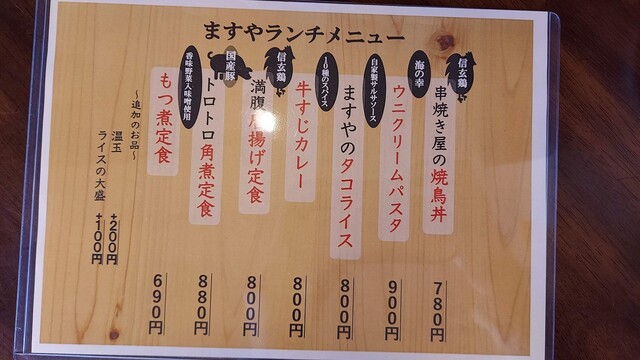 ますやランチメニュー
信玄鶏
串焼き屋の焼鳥丼
780円
海の幸
ウニクリームパスタ
900円
自家製サルサソース
ますやのタコライス
800円
10種のスパイス
牛すじカレー
800円
信玄鶏
満腹唐揚げ定食
800円
国産豚
トロトロ角煮定食
880円
香味野菜入味噌使用
もつ煮定食
690円
～追加のお品～
温玉
+200円
ライスの大盛
+100円